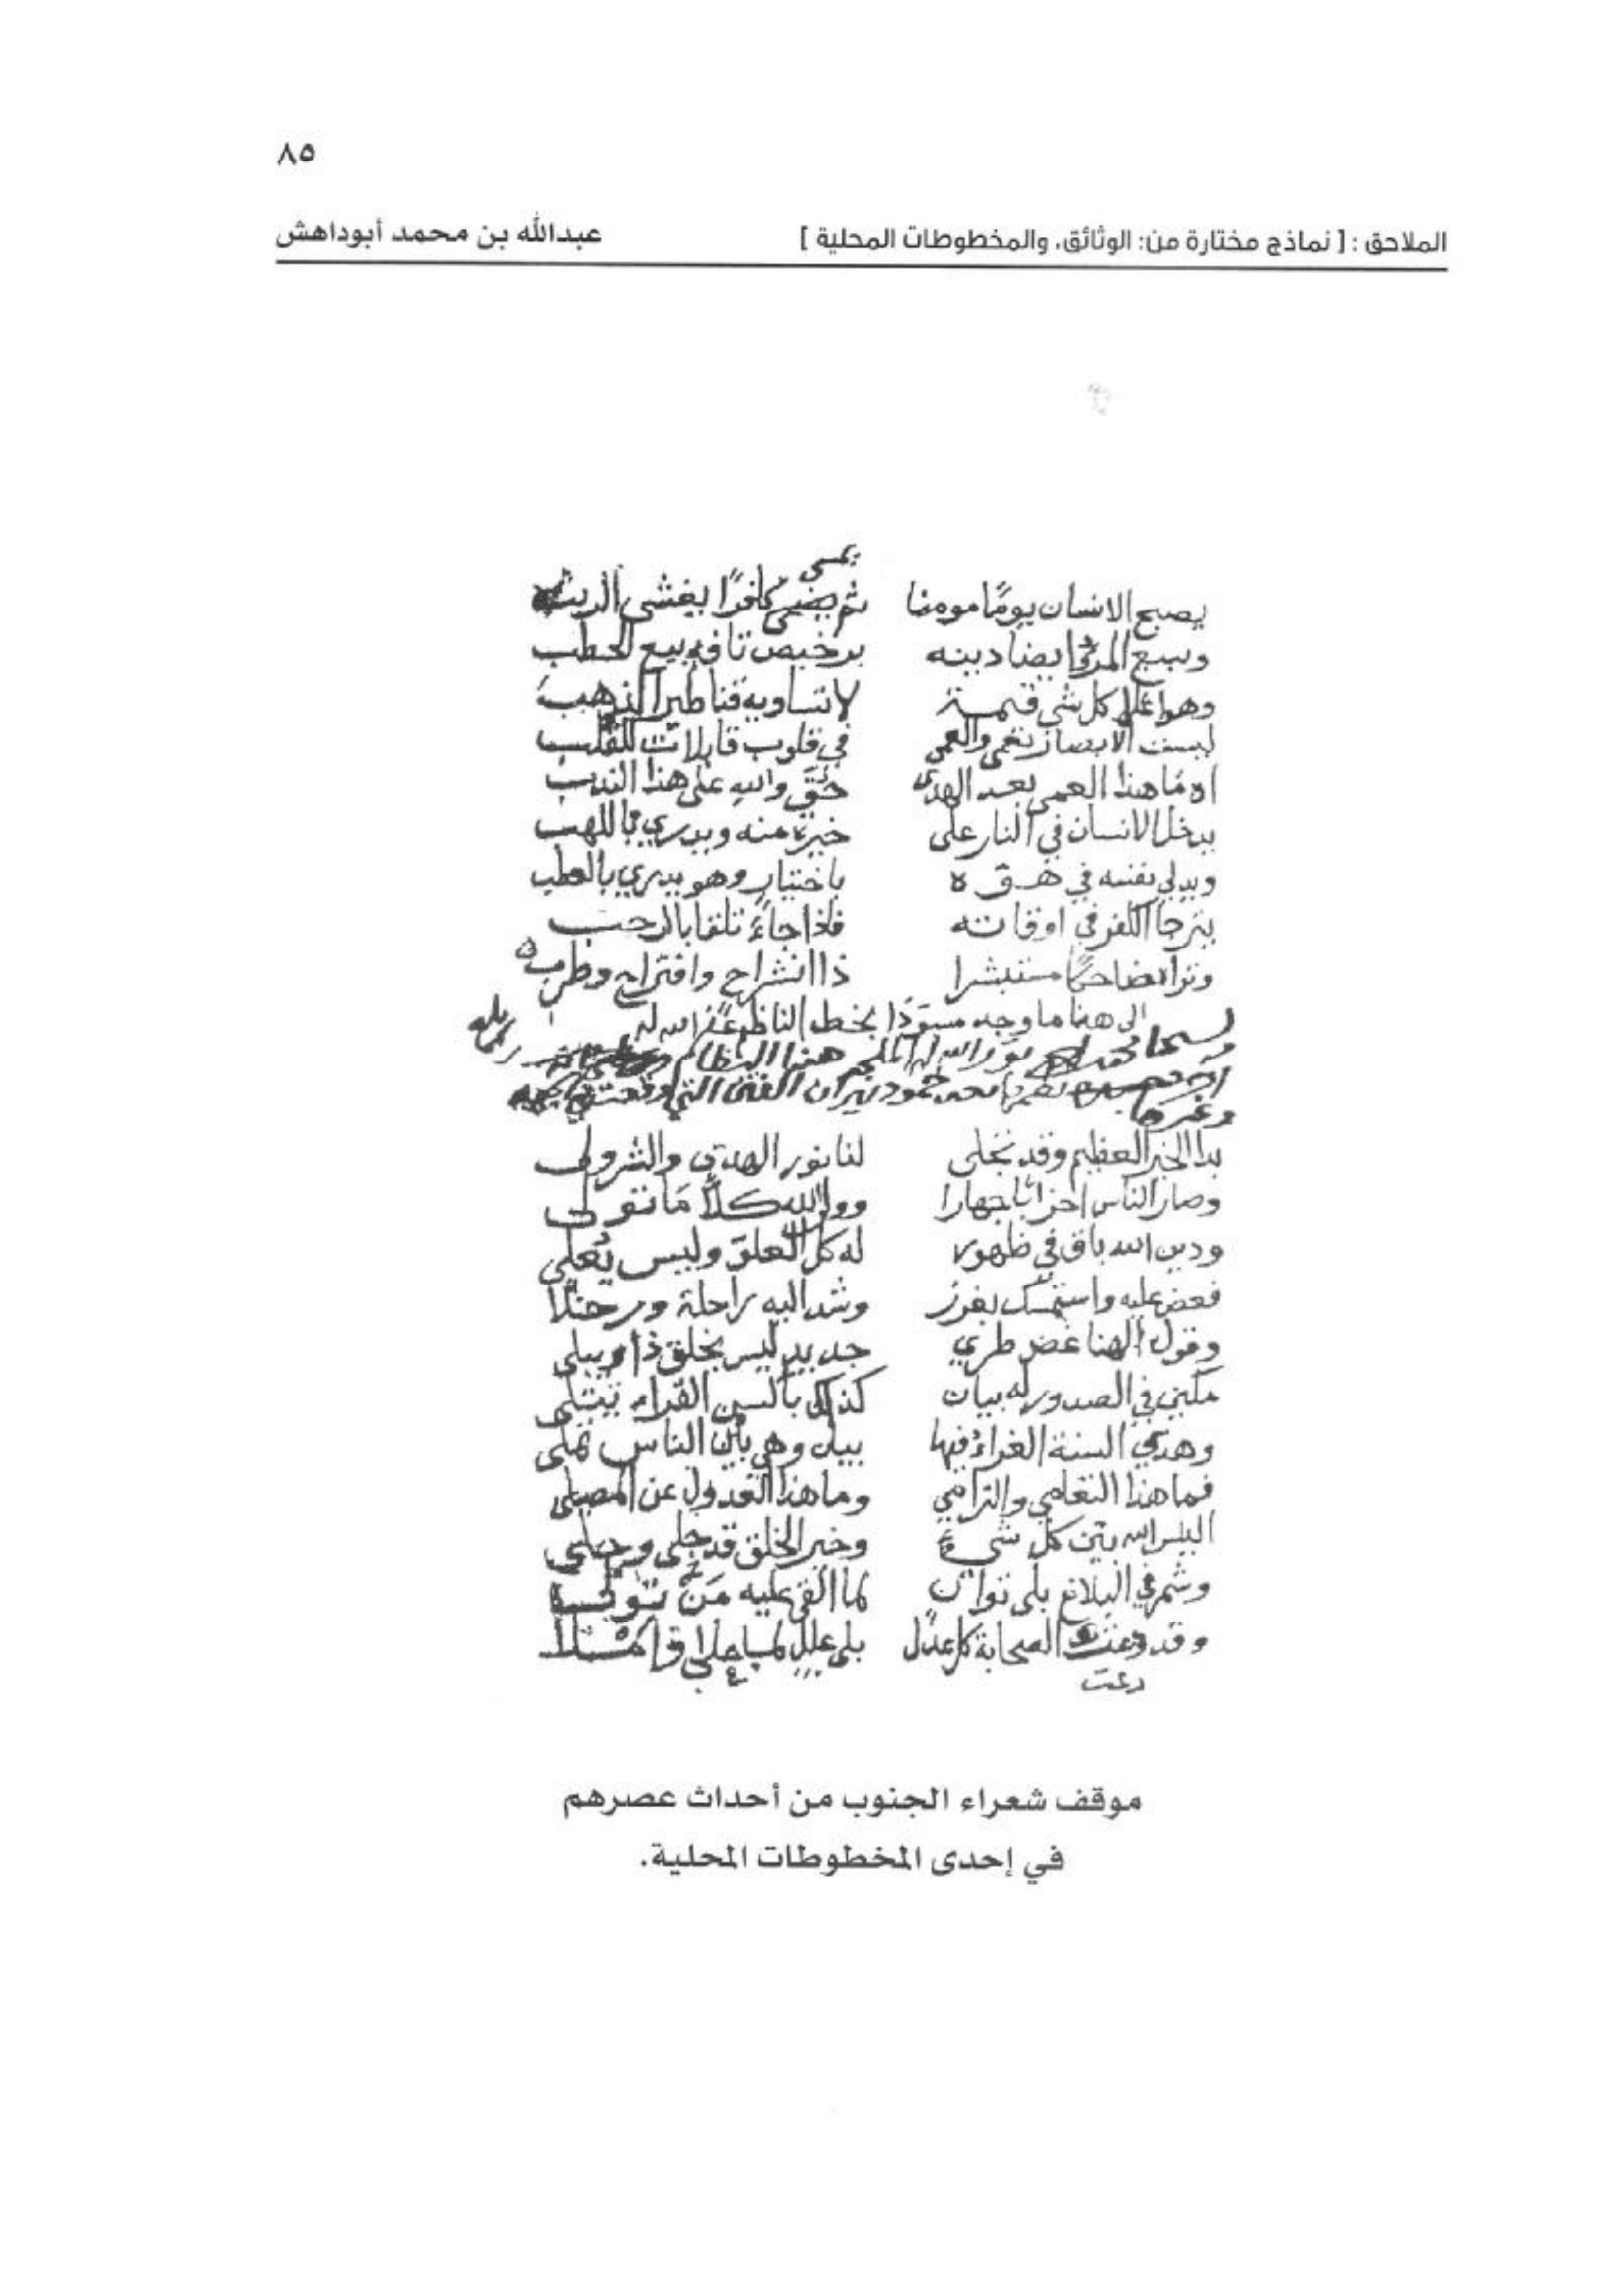 ٨٥
الملاحق : [ نماذج مختارة من: الوثائق، والمخطوطات المحلية ] عبدالله بن محمد أبوداهش
يمسي
يصبح الانسان يومًا مومنا ثم كافرًا يغشى الريب
ويبيع المرء ايضا دينه برخيص تافه بيع الحطب
وهو اغلى كل شي قيمة لا تساويه قناطير الذهب
ليست الابصار تعمى والعمى في قلوب قابلات للقلب
اه ما هذا العمى بعد الهدى حق والله على هذا الندب
يدخل الانسان في النار على خبرة منه ويدري باللهب
ويدلي نفسه في هوة باختيار وهو يدري بالعطب
يترجا الكفر في اوقاته فاذا جاء تلقا بالرحب
وتراه ضاحكًا مستبشرا ذا انشراح وافتراح وطرب
الى هنا ما وجد مسودًا بخط الناظم غفر الله له
هذا النظام
بعد خمود نيران الفتن التي وقعت في
وغيرها
بدا الخير العظيم وقد تجلى لنا نور الهدى والشر ولى
وصار الناس احزابًا جهارا وولى الله كلًا ما تولى
ودين الله باق في ظهور له كل العلو وليس يُعلى
فعض عليه واستمسك بغرز وشد اليه راحلة ورحلًا
وقول الهنا غض طري جديد ليس يخلق ذا ويبلى
مكين في الصدور له بيان كذلك بألسن القراء يتلى
وهدي السنة الغراء فيها بيان وهي بين الناس تملى
فما هذا التعامي والترامي وما هذا العدول عن المصلى
اليس الله بين كل شيء وخير الخلق قد جلى
وشمر في البلاغ بلى توان لما القي عليه
وقد الصحابة كل عدل بلى علل
وعت
موقف شعراء الجنوب من أحداث عصرهم
في إحدى المخطوطات المحلية.